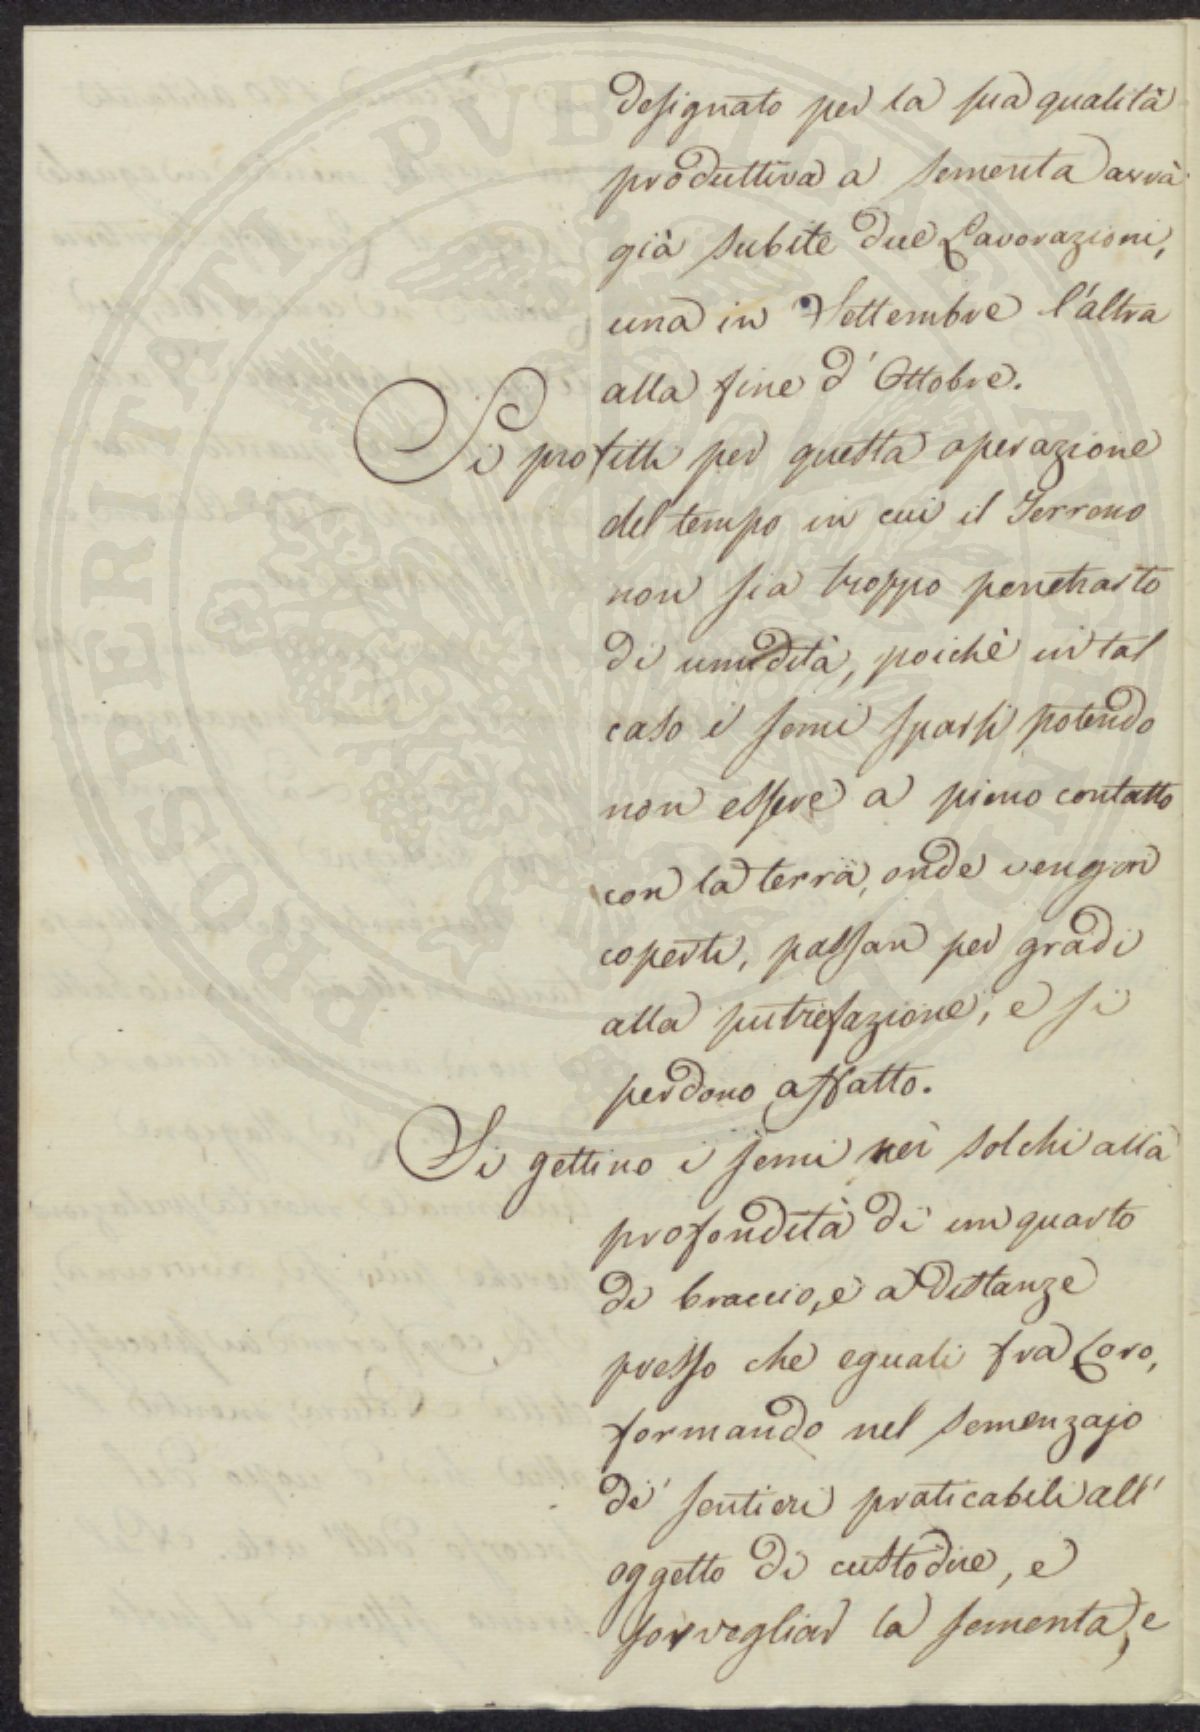 designato per la sua qualità
produttiva a sementa avrà
già subite due Lavorazioni,
una in Settembre l'altra
alla fine d'Ottobre.
Si profitti per questa operazione
del tempo in cui il Terreno
non sia troppo penetrato
di umidità, poichè in tal
caso i semi sparsi potendo
non essere a pieno contatto
con la terra, onde vengon
coperti, passan per gradi
alla putrefazione, e si
perdono affatto.
Si gettino i semi nei solchi alla
profondità di un quarto
di braccio, e a distanze
presso che eguali fra Loro,
formando nel semenzajo
di' sentieri praticabili all'
oggetto di custodire, e
sorvegliar la sementa, e
PROSPERITATI PVBLICAE AVGENDAE